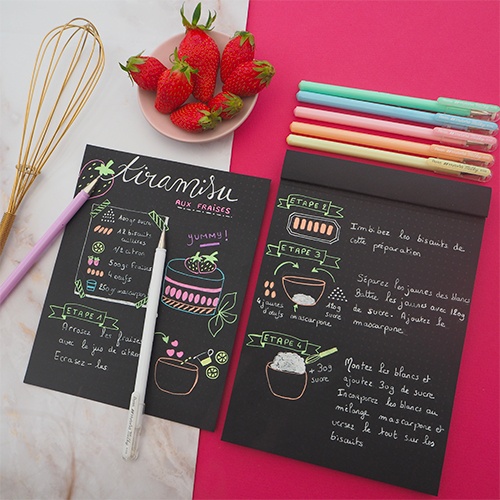 tiramisu
AUX FRAISES
yummy!
12 biscuits
cuillères
1/2 citron
500gr fraises
4 oeufs
250gr mascarpone
ETAPE 1
Arrosez les fraises
avec le jus de citron
Ecrasez-les
ETAPE 2
Imbibez les biscuits de
cette préparation
ETAPE 3
4 jaunes
d'oeufs
mascarpone
sucre
Séparez les jaunes des blancs
Battre les jaunes avec
de sucre. Ajoutez le
mascarpone
ETAPE 4
+ 30g
sucre
Montez les blancs et
ajoutez 30g de sucre
Incorporez les blancs au
mélange mascarpone et
versez le tout sur les
biscuits